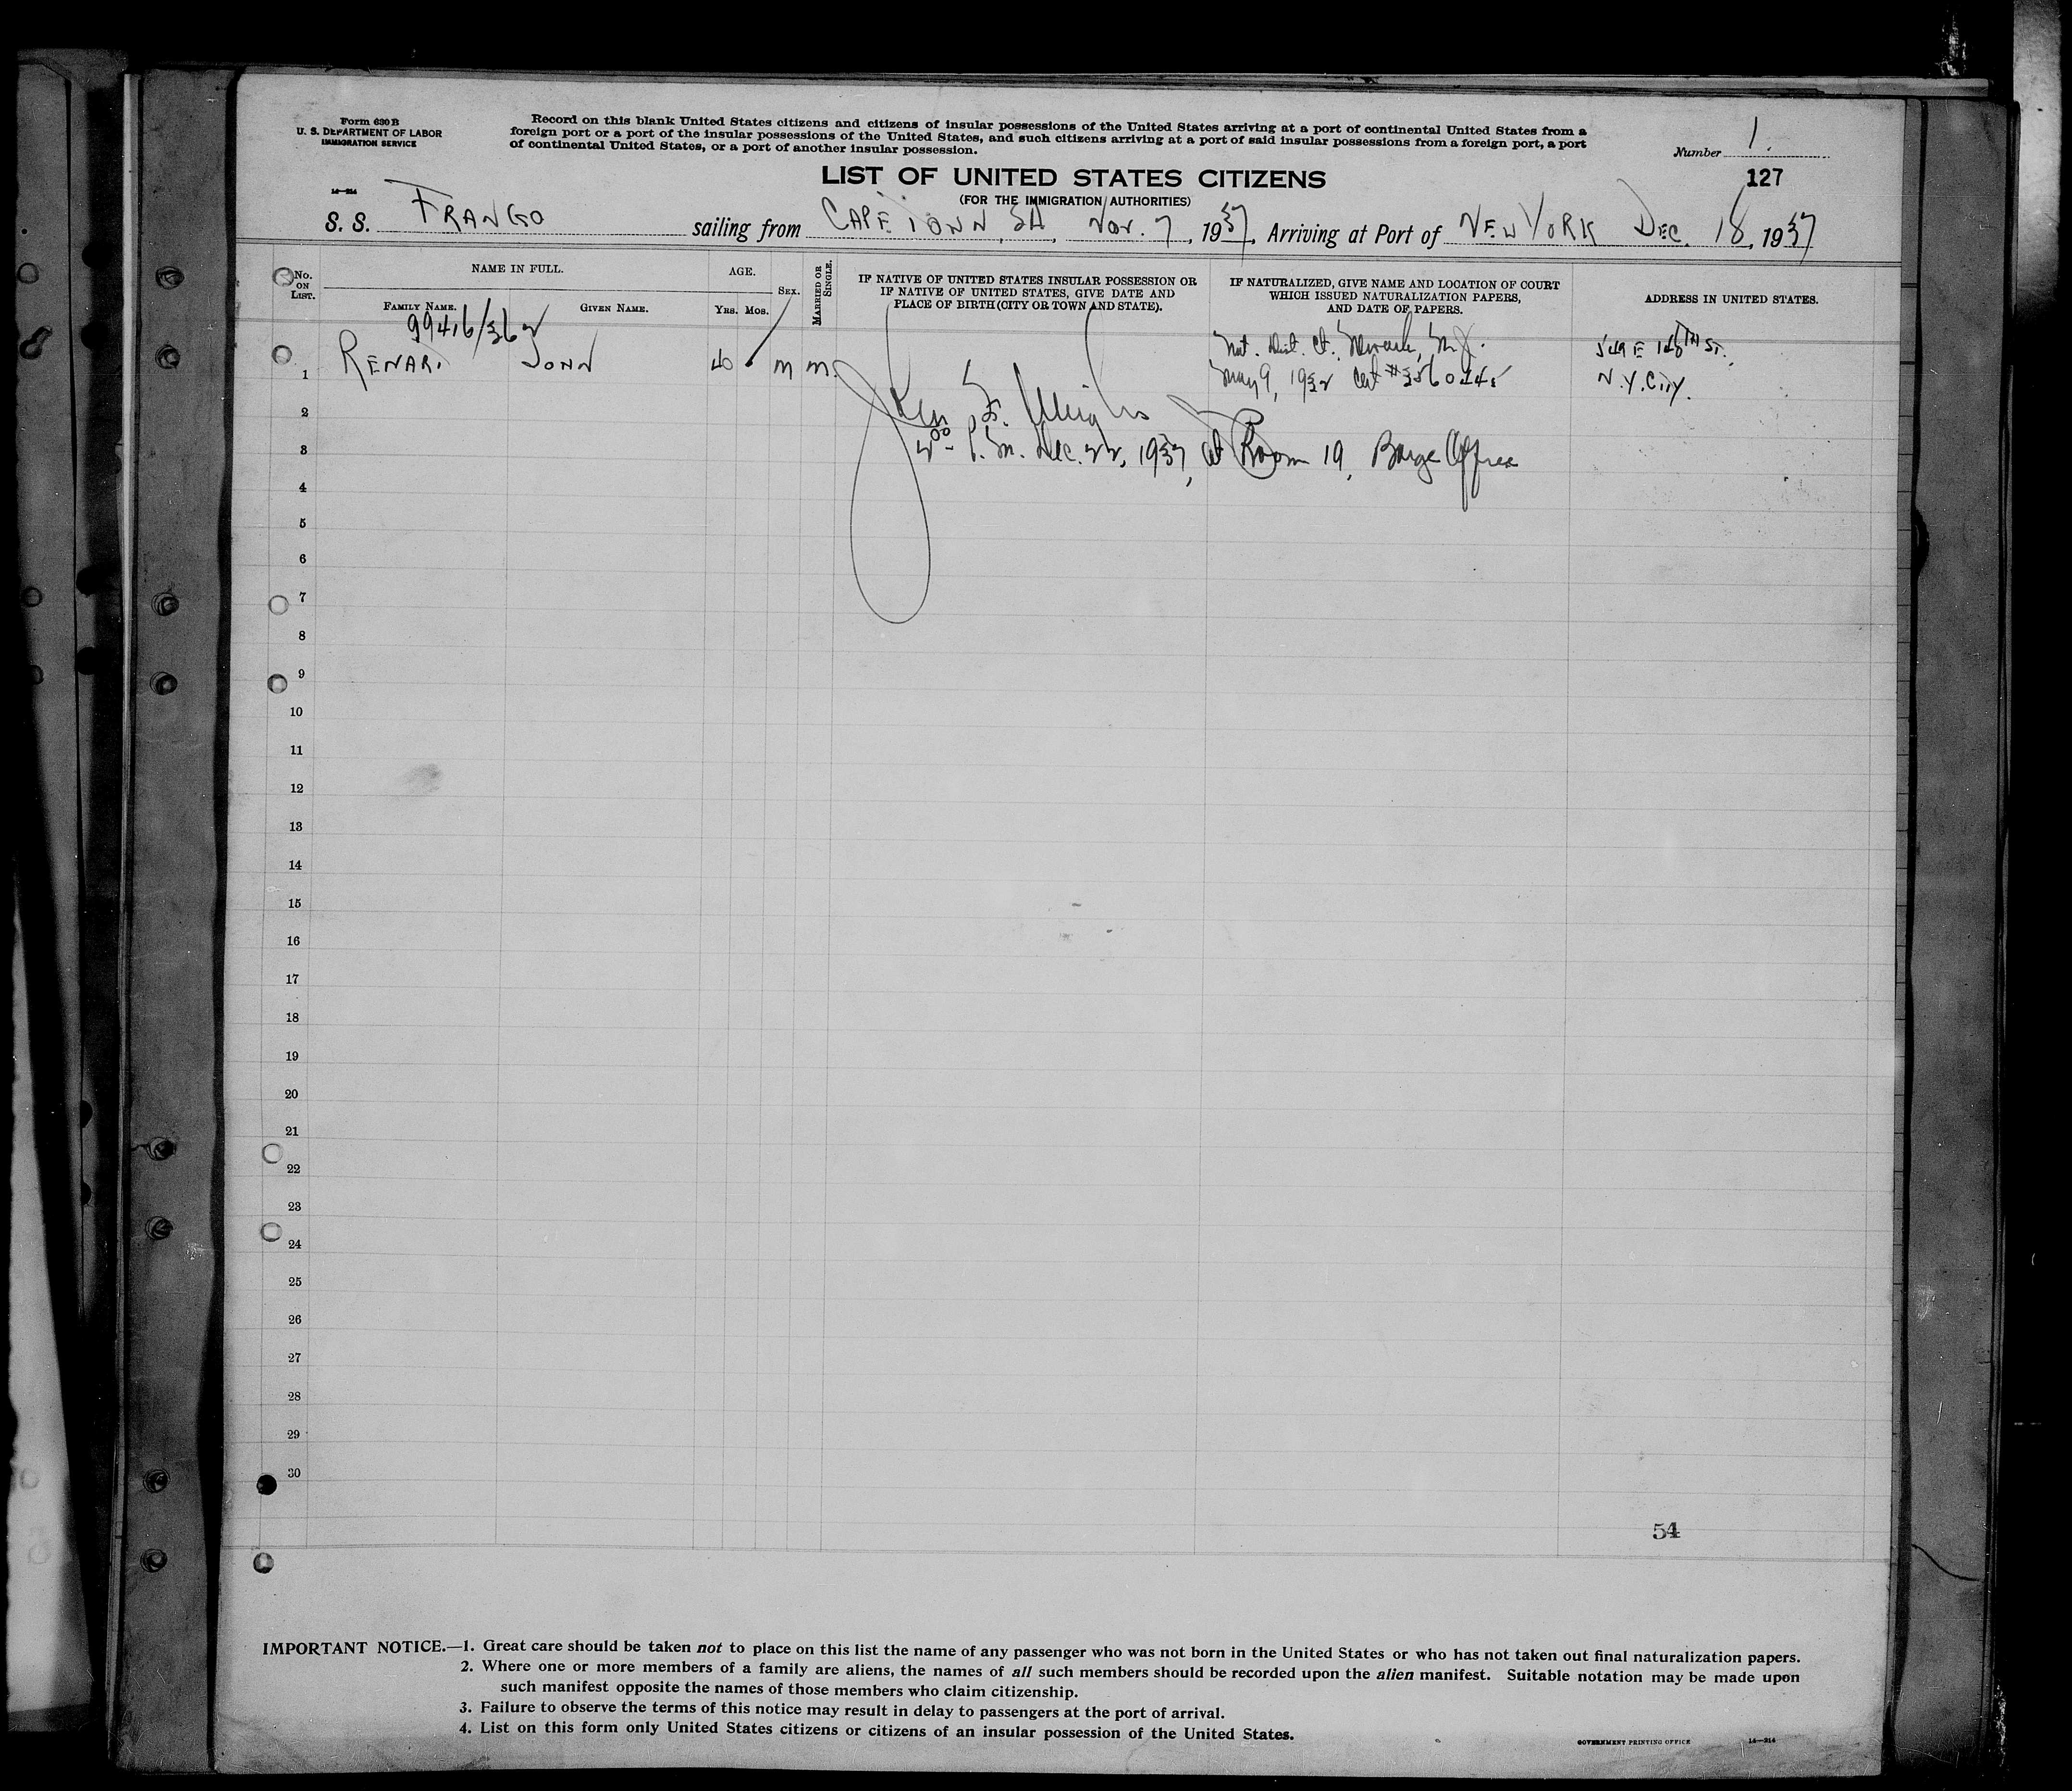 Form 630 B
U. S. DEPARTMENT OF LABOR
IMMIGRATION SERVICE
Record on this blank United States citizens and citizens of insular possessions of the United States arriving at a port of continental United States from a
foreign port or a port of the insular possessions of the United States, and such citizens arriving at a port of said insular possessions from a foreign port, a port
of continental United States, or a port of another insular possession.
Number 1.
LIST OF UNITED STATES CITIZENS
127
14—214
(FOR THE IMMIGRATION AUTHORITIES)
S. S. FRANGO sailing from CAPE TOWN, SA, Nov. 7, 1937, Arriving at Port of NEW YORK DEC. 18, 1937
No. ON LIST.
NAME IN FULL.
FAMILY NAME.
GIVEN NAME.
AGE.
YRS. MOS.
SEX.
MARRIED OR SINGLE.
IF NATIVE OF UNITED STATES INSULAR POSSESSION OR
IF NATIVE OF UNITED STATES, GIVE DATE AND
PLACE OF BIRTH (CITY OR TOWN AND STATE).
IF NATURALIZED, GIVE NAME AND LOCATION OF COURT
WHICH ISSUED NATURALIZATION PAPERS,
AND DATE OF PAPERS.
ADDRESS IN UNITED STATES.
9946/362
1 RENARI JOHN 40 m m.
Dist. Ct. Newark, N.J.
May 9, 1932 Cert
N.Y. City.
2
3 2 00 P.M. Dec. 22, 1937, at Room 19, Barge Office
4
5
6
7
8
9
10
11
12
13
14
15
16
17
18
19
20
21
22
23
24
25
26
27
28
29
30
54
IMPORTANT NOTICE.—1. Great care should be taken not to place on this list the name of any passenger who was not born in the United States or who has not taken out final naturalization papers.
2. Where one or more members of a family are aliens, the names of all such members should be recorded upon the alien manifest. Suitable notation may be made upon
such manifest opposite the names of those members who claim citizenship.
3. Failure to observe the terms of this notice may result in delay to passengers at the port of arrival.
4. List on this form only United States citizens or citizens of an insular possession of the United States.
GOVERNMENT PRINTING OFFICE 14—214